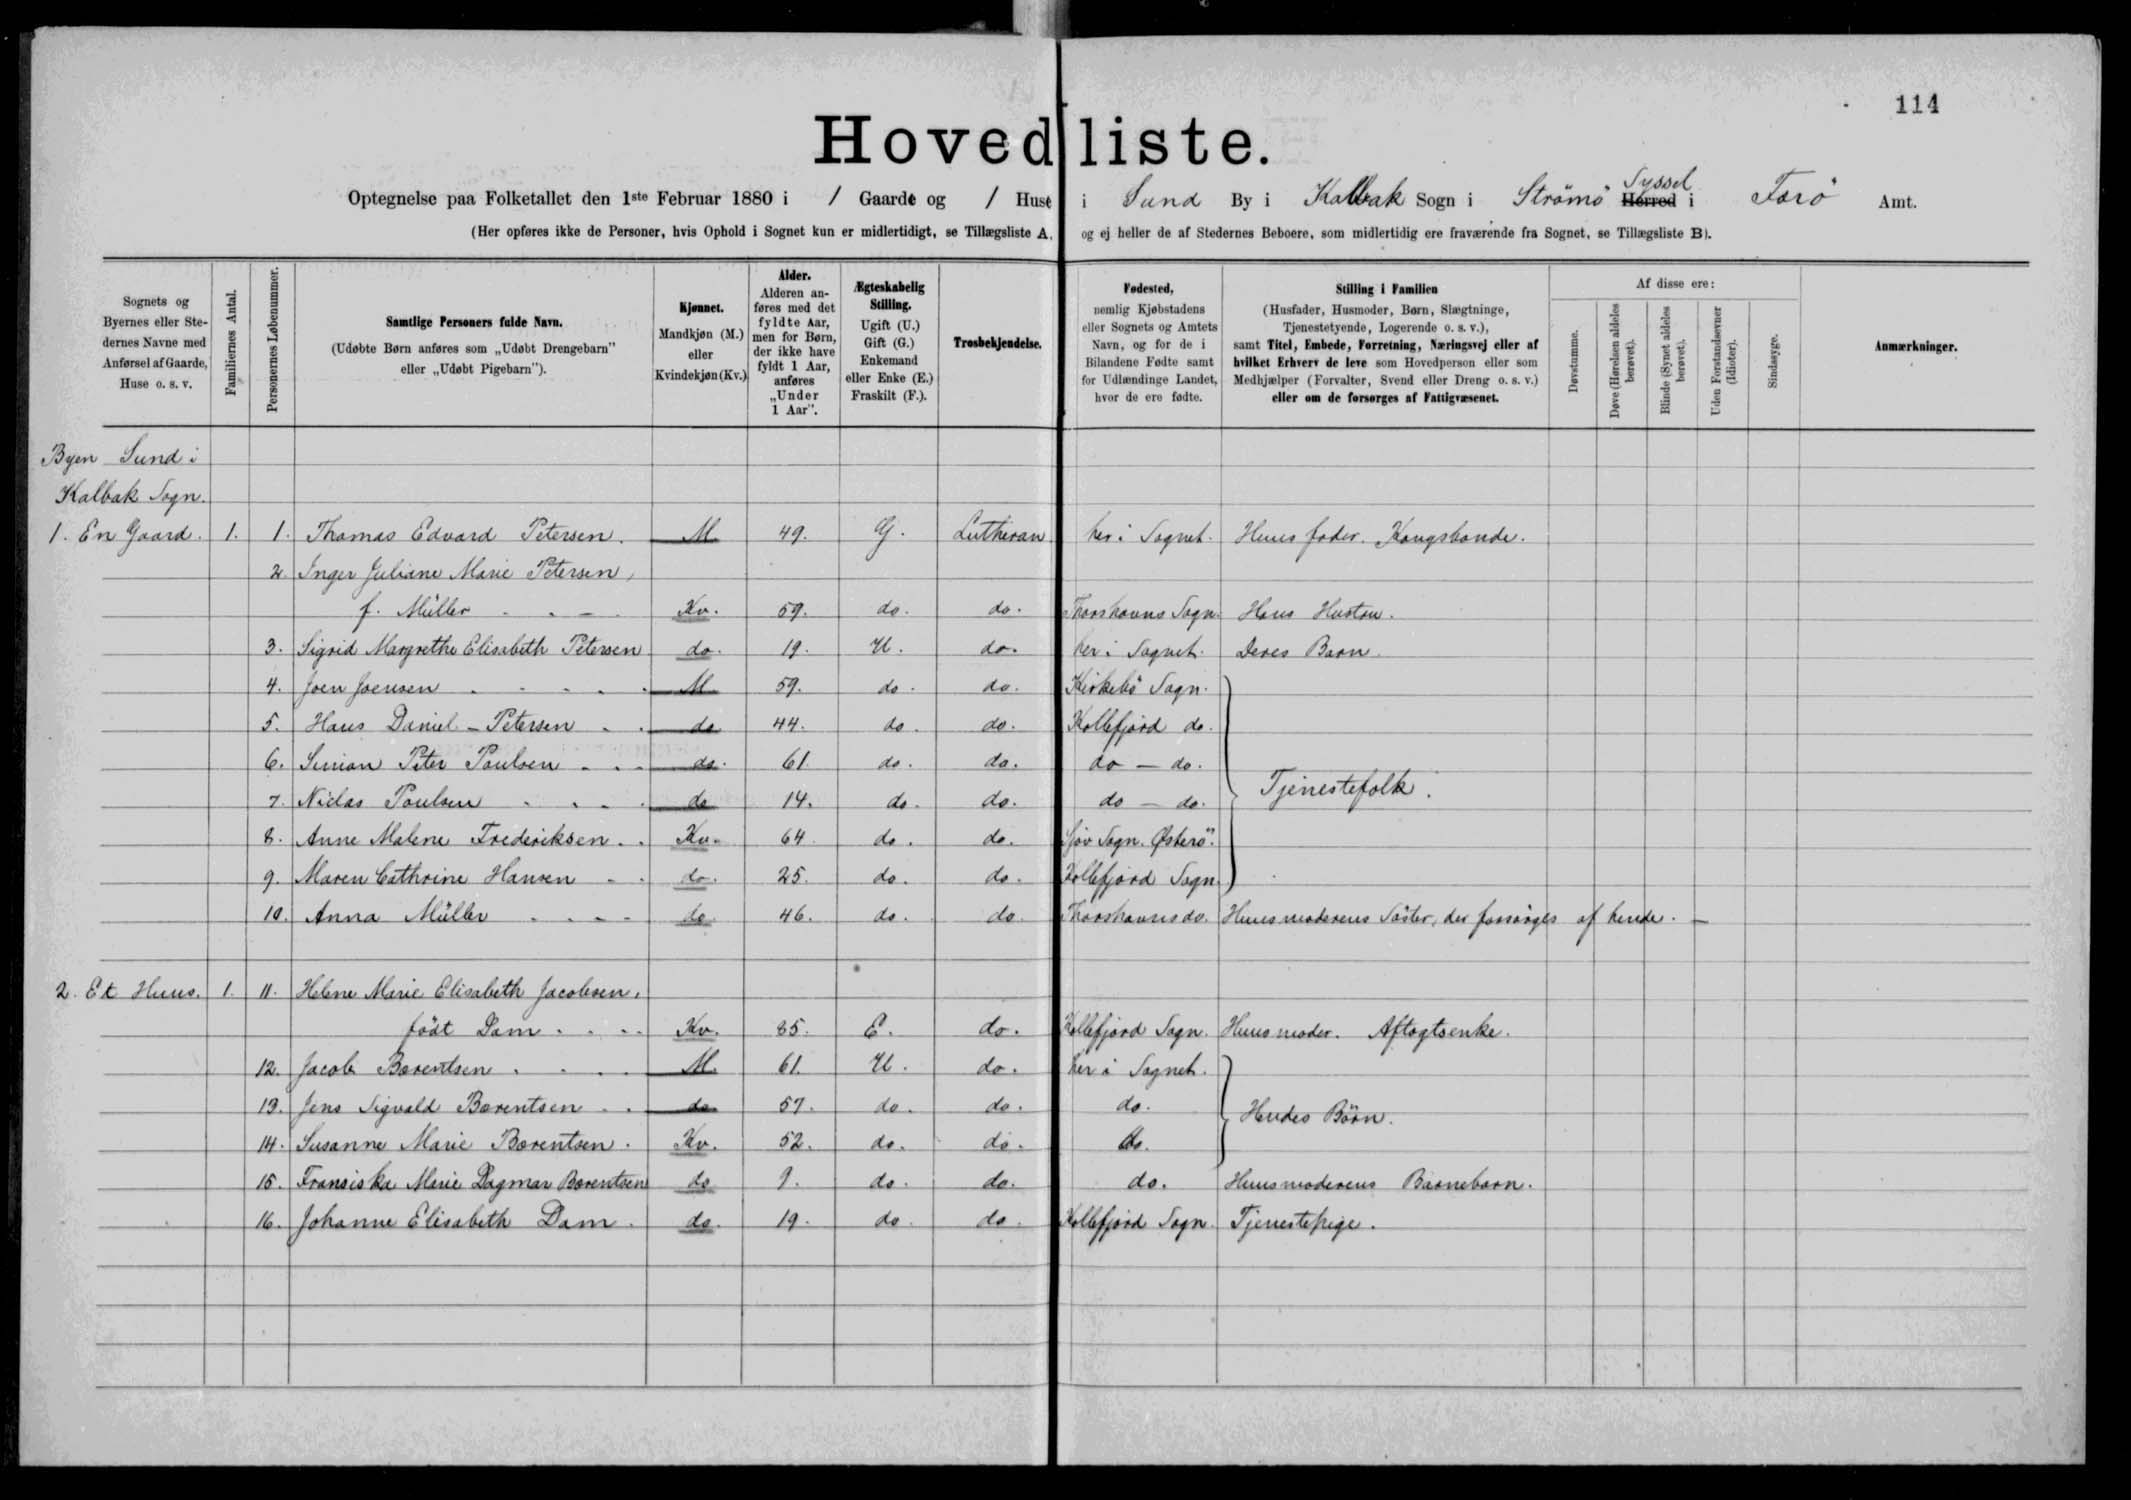 114
Hovedliste.
Optegnelse paa Folketallet den 1ste Februar 1880 i 1 Gaarde og 1 Huse i Sund By i Kalbak Sogn i Strömö Herred Syssel i Færö Amt.
(Her opføres ikke de Personer, hvis Ophold i Sognet kun er midlertidigt, se Tillægsliste A, og ej heller de af Stedernes Beboere, som midlertidig ere fraværende fra Sognet, se Tillægsliste B).
Sognets og Byernes eller Stedernes Navne med Anførsel af Gaarde, Huse o. s. v.
Familiernes Antal.
Personernes Løbenummer.
Samtlige Personers fulde Navn.
(Udøbte Børn anføres som „Udøbt Drengebarn" eller „Udøbt Pigebarn").
Kjønnet.
Mandkjøn (M.) eller Kvindekjøn (Kv.)
Alder.
Alderen anføres med det fyldte Aar, men for Børn, der ikke have fyldt 1 Aar, anføres „Under 1 Aar".
Ægteskabelig Stilling.
Ugift (U.) Gift (G.) Enkemand eller Enke (E.) Fraskilt (F.).
Trosbekjendelse.
Fødested,
nemlig Kjøbstadens eller Sognets og Amtets Navn, og for de i Bilandene Fødte samt for Udlændinge Landet, hvor de ere fødte.
Stilling i Familien
(Husfader, Husmoder, Børn, Slægtninge, Tjenestetyende, Logerende o. s. v.),
samt Titel, Embede, Forretning, Næringsvej eller af hvilket Erhverv de leve som Hovedperson eller som Medhjælper (Forvalter, Svend eller Dreng o. s. v.)
eller om de forsørges af Fattigvæsenet.
Af disse ere:
Døvstumme.
Døve (Hørelsen aldeles berøvet).
Blinde (Synet aldeles berøvet).
Uden Forstandsevner (Idioter).
Sindssyge.
Anmærkninger.
Byen Sund i
Kalbak Sogn.
1. En Gaard. 1. 1. Thomas Edvard Petersen. M 49. G. Lutheran her i Sognet. Huusfader. Kongsbonde.
2. Inger Juliane Marie Petersen,
f. Müller Kv. 59. do. do. Thorshavns Sogn. Hans Hustru.
3. Sigrid Margrethe Elisabeth Petersen do. 19. U. do. her i Sognet. Deres Barn.
4. Joen Joensen M 59. do. do. Kirkebö Sogn.
5. Hans Daniel Petersen do 44. do. do. Kollefjord do.
6. Simon Peter Poulsen do. 61 do. do. do - do.
7. Niclas Poulsen do 14. do. do. do - do. Tjenestefolk.
8. Anne Malene Frederiksen Kv. 64 do. do. Sjov Sogn. Østerö.
9. Maren Cathrine Hansen do. 25. do. do. Kollefjord Sogn
10. Anna Müller do 46. do. do Thorshavns do. Huusmoderens Söster, der forsörges af hende.
2. Et Huus. 1. 11. Helene Marie Elisabeth Jacobsen,
födt Dam Kv. 85. E. do. Kollefjord Sogn. Huusmoder. Aftogtsenke.
12. Jacob Bærentsen M. 61. U. do. her i Sognet.
13. Jens Sigvald Bærentsen do 57. do. do. do. Hendes Börn.
14. Susanne Marie Bærentsen. Kv. 52. do. do. do.
15. Fransiska Marie Dagmar Bærentsen do 9. do. do. do. Huusmoderens Barnebarn.
16. Johanne Elisabeth Dam. do. 19. do. do. Kollefjord Sogn. Tjenestepige.